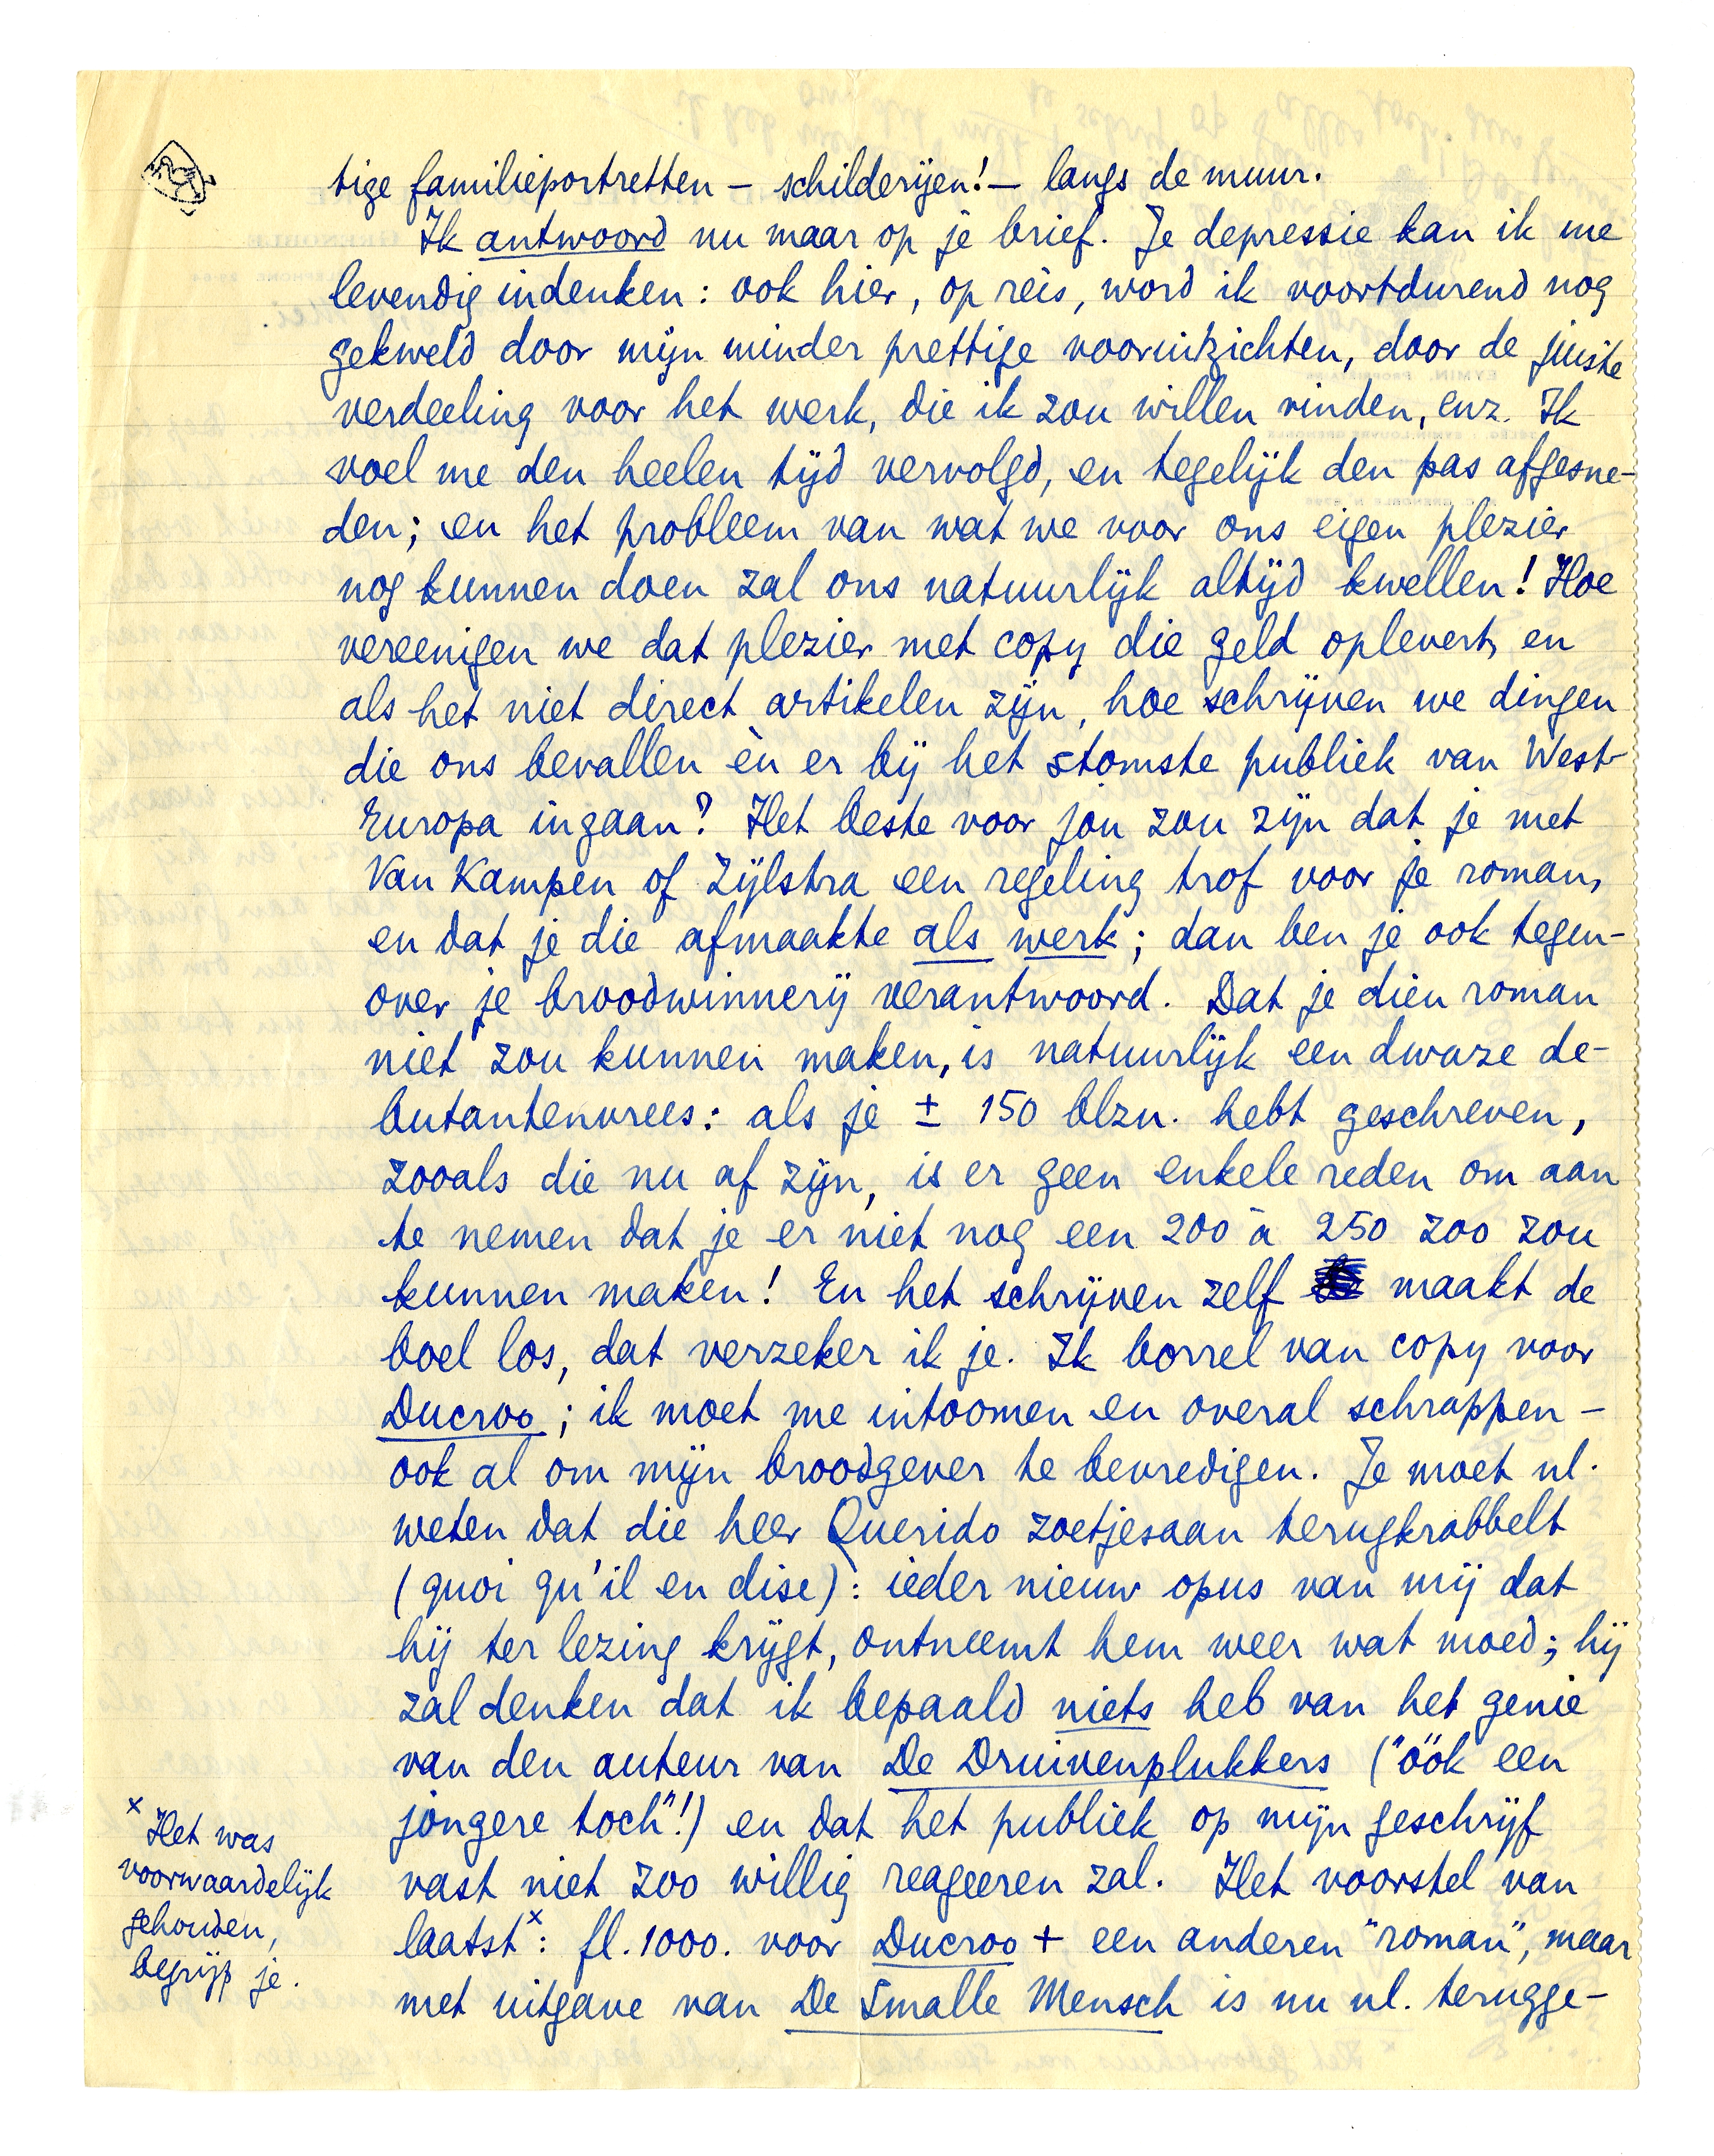 tige familieportretten – schilderijen! – langs de muur.
Ik antwoord nu maar op je brief. Je depressie kan ik me
levendig indenken: ook hier, op reis, word ik voortdurend nog
gekweld door mijn minder prettige vooruitzichten, door de juiste
verdeeling voor het werk, die ik zou willen vinden, enz. Ik
voel me den heelen tijd vervolgd, en tegelijk den pas afgesne-
den; en het probleem van wat we voor ons eigen plezier
nog kunnen doen zal ons natuurlijk altijd kwellen! Hoe
vereenigen we dat plezier met copy die geld oplevert, en
als het niet direct artikelen zijn, hoe schrijven we dingen
die ons bevallen èn er bij het stomste publiek van West-
Europa ingaan? Het beste voor jou zou zijn dat je met
Van Kampen of Zijlstra een regeling trof voor je roman,
en dat je die afmaakte als werk; dan ben je ook tegen-
over je broodwinnerij verantwoord. Dat je dien roman
niet zou kunnen maken, is natuurlijk een dwaze de-
butantenvrees: als je ± 150 blzn. hebt geschreven,
zooals die nu af zijn, is er geen enkele reden om aan
te nemen dat je er niet nog een 200 à 250 zoo zou
kunnen maken! En het schrijven zelf maakt de
boel los, dat verzeker ik je. Ik borrel van copy voor
Ducroo; ik moet me intoomen en overal schrappen –
ook al om mijn broodgever te bevredigen. Je moet nl.
weten dat die heer Querido zoetjesaan terugkrabbelt
(quoi qu'il en dise): ieder nieuw opus van mij dat
hij ter lezing krijgt, ontneemt hem weer wat moed; hij
zal denken dat ik bepaald niets heb van het genie
van den auteur van De Druivenplukkers ("óók een
jongere toch"!) en dat het publiek op mijn geschrijf
vast niet zoo willig reageeren zal. Het voorstel van
laatst x: fl. 1000. voor Ducroo + een anderen "roman", maar
met uitgave van De Smalle Mensch is nu nl. terugge-
x Het was
voorwaardelijk
gehouden,
begrijp je.